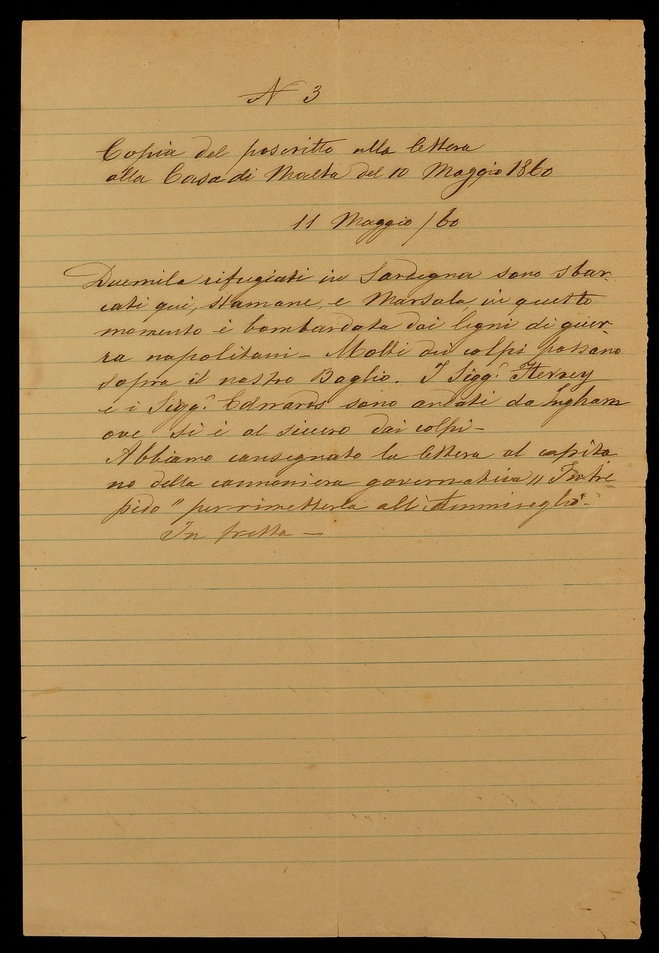 N 3
Copia del poscritto alla lettera
alla Casa di Malta del 10 Maggio 1860
11 Maggio /60
Duemila rifugiati in Sardegna sono sbar-
cati qui, stamane, e Marsala in questo
momento è bombardata dai legni di guer-
ra napolitani – Molti dei colpi passano
sopra il nostro Baglio. I Sigg.i Hervey
e i Sigg.i Edwards sono andati da Ingham
ove si è al sicuro dai colpi –
Abbiamo consegnato la lettera al capita
no della cannoniera governativa "Intre
pido" per rimetterla all'
In fretta –